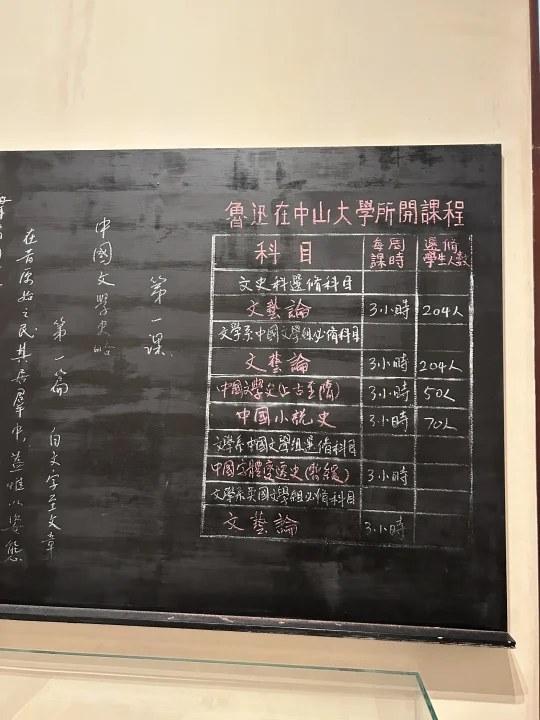 魯迅在中山大學所開課程
科目 每周課時 選修學生人數
文史科選修科目
文藝論 3小時 204人
文學系中國文學組必修科目
文藝論 3小時 204人
中國文學史(上古至隋) 3小時 50人
中國小説史 3小時 70人
文學系中國文學組選修科目
中國字體變遷史(暫緩) 3小時
文學系英國文學組必修科目
文藝論 3小時
第一課
中國文學史略
第一篇 自文字至文章
在昔原始之民其居羣中，蓋惟以姿態